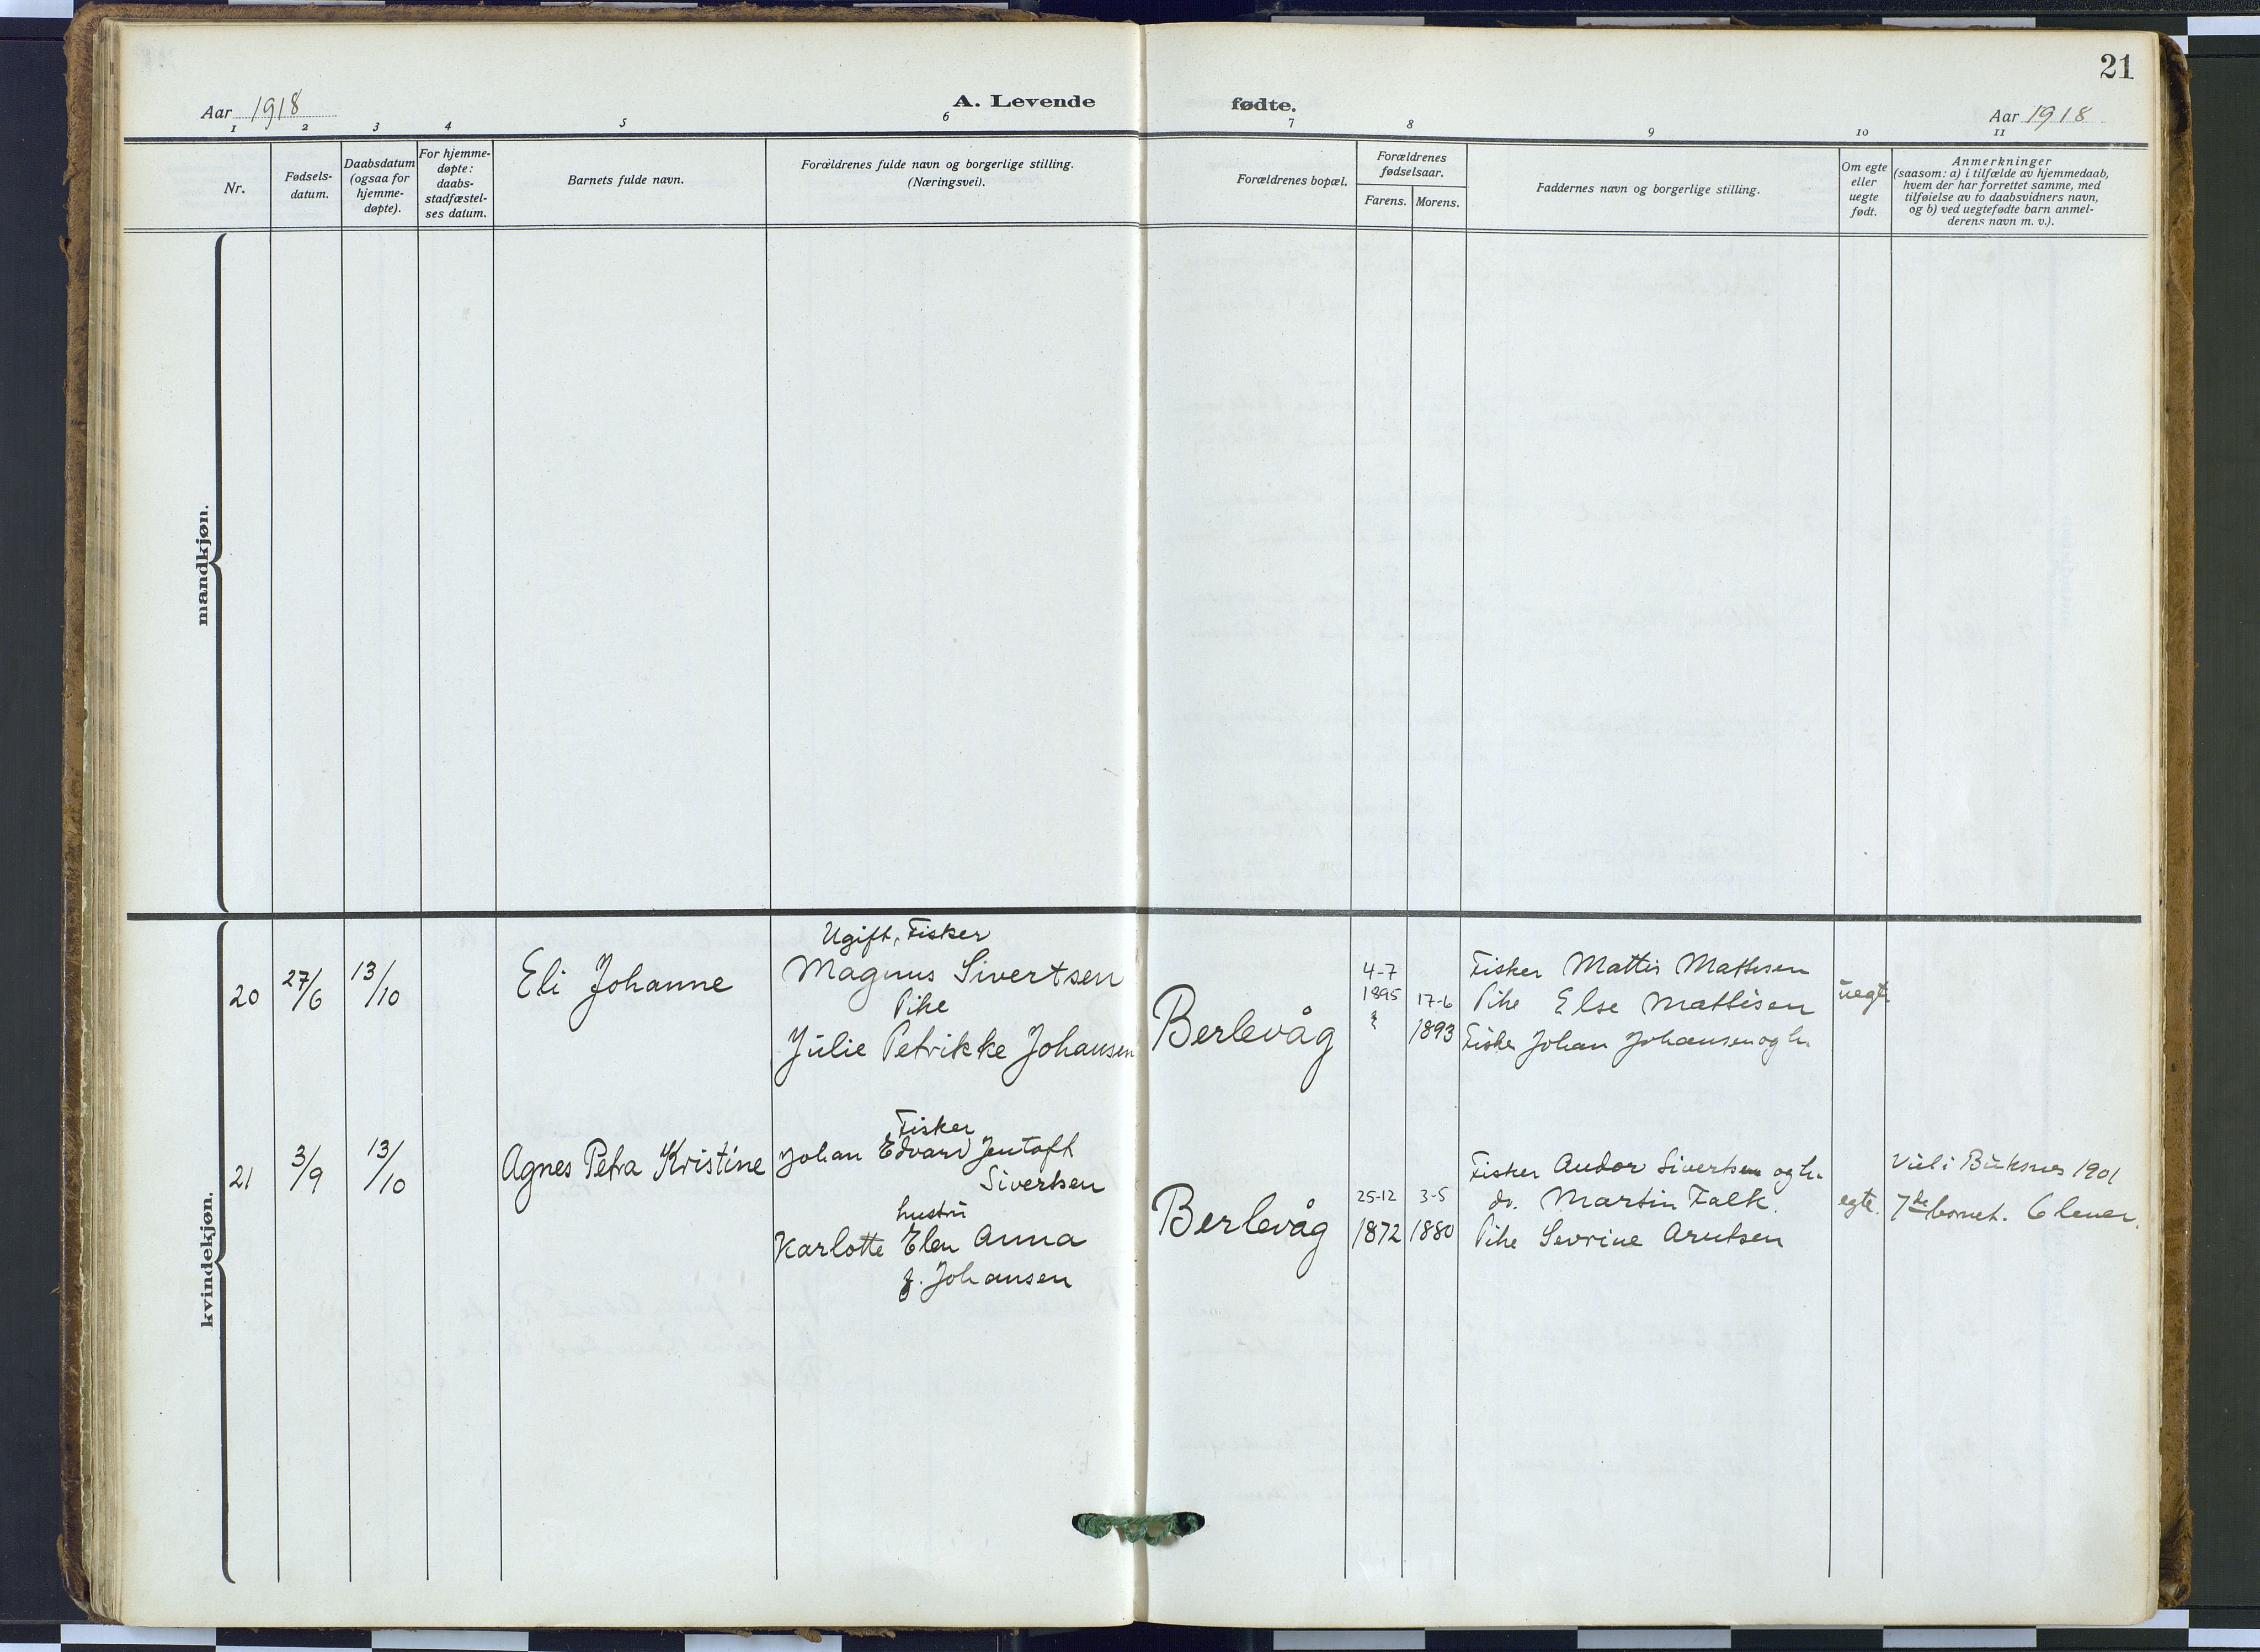 21
Aar 1918
A. Levende fødte.
Aar 1918
1 2 3 4 5 6 7 8 9 10 11
Nr.
Fødsels-
datum.
Daabsdatum
(ogsaa for
hjemme-
døpte).
For hjemme-
døpte:
daabs-
stadfæstel-
ses datum.
Barnets fulde navn.
Forældrenes fulde navn og borgerlige stilling.
(Næringsvei).
Forældrenes bopæl.
Forældrenes
fødselsaar.
Farens. Morens.
Faddernes navn og borgerlige stilling.
Om egte
eller
uegte
født.
Anmerkninger
(saasom: a) i tilfælde av hjemmedaab,
hvem der har forrettet samme, med
tilføielse av to daabsvidners navn,
og b) ved uegtefødte barn anmel-
derens navn m. v.).
mandkjøn.
kvindekjøn.
20
27/6
13/10
Eli Johanne
Ugift, Fisker
Magnus Sivertsen
Pike
Julie Petrikke Johansen
Berlevåg
4-7
1895
17-6
1893
Fisker Mattis Mattisen
Pike Else Mattisen
Fisker Johan Johansen og h.
uegt.
21
3/9
13/10
Agnes Petra Kristine
Fisker
Johan Edvard Jentoft
Sivertsen
hustru
Karlotte Elen Anna
f. Johansen
Berlevåg
25-12
1872
3-5
1880
Fisker Andor Sivertsen og h.
do. Martin Falk.
Pike Sevrine Arntsen
egte.
Viet i Buksnes 1901
7de barnet. 6 lever.